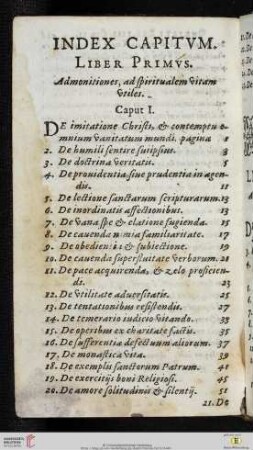 INDEX CAPITVM.
LIBER PRIMVS.
Admonitiones, ad spiritualem vitam
vtiles.
Caput I.
DE imitatione Christi, & contemptu o-
mnium vanitatum mundi. pagina 1
2. De humili sentire suiipsius. 3
3. De doctrina veritatis. 5
4. De prouidentia siue prudentia in agen-
dis. 11
5. De lectione sanctarum scripturarum. 13
6. De inordinatis affectionibus. 13
7. De vana spe & elatione fugienda. 15
8. De cauenda nimia familiaritate. 17
9. De obedientia & subiectione. 19
10. De cauenda superfluitate verborum. 21
11. De pace acquirenda, & zelo proficien-
di. 23
12. De vtilitate aduersitatis. 25
13. De tentationibus resistendis. 27
14. De temerario iudicio vitando. 33
15. De operibus ex charitate factis. 35
16. De sufferentia defectuum aliorum. 37
17. De monastica vita. 39
18. De exemplis sanctorum Patrum. 41
19. De exercitijs boni Religiosi. 45
20. De amore solitudinis & silentij. 51
21. De